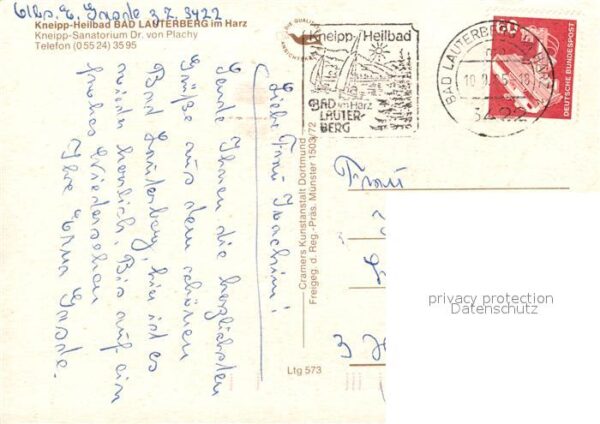 Abs. E. Gaste z. Z. 3422
Kneipp-Heilbad BAD LAUTERBERG im Harz
Kneipp-Sanatorium Dr. von Plachy
Telefon (0 55 24) 35 95
Liebe Frau Joachim!
Sende Ihnen die herzlichsten
Grüße aus dem schönen
Bad Lauterberg, hier ist es
wieder herrlich. Bis auf ein
frohes Wiedersehen
Ihre Erna Gaste.
Cramers Kunstanstalt Dortmund
Freigeg. d. Reg.-Präs. Münster 1503/72
Ltg 573
Kneipp-Heilbad
BAD im Harz
LAUTER-
BERG
BAD LAUTERBERG IM HARZ
3422
60
DEUTSCHE BUNDESPOST
Frau
3
privacy protection
Datenschutz